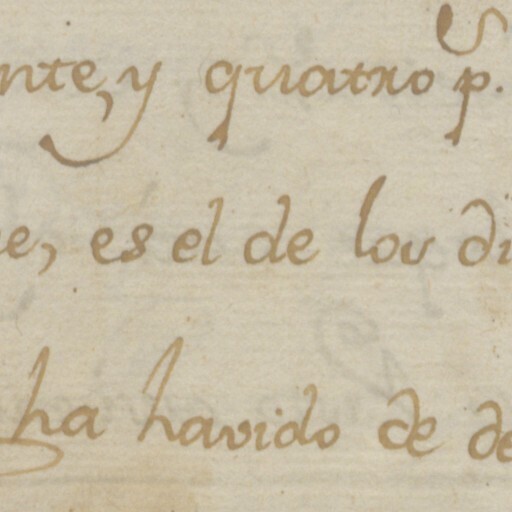 nte, y quatro p.s
e, es el de los di
ha havido de de